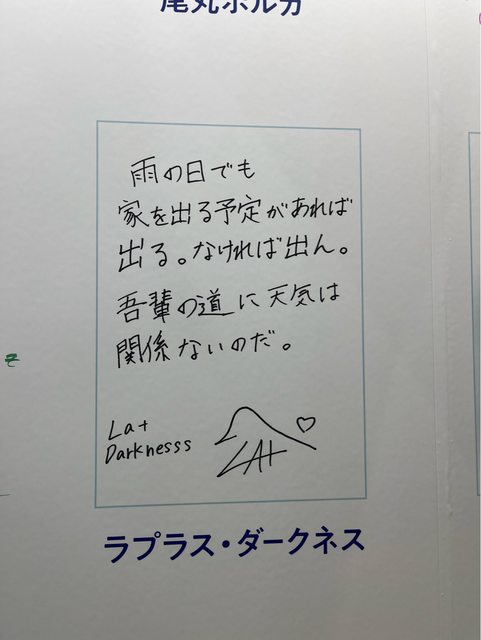 尾丸ポルカ
雨の日でも
家を出る予定があれば
出る。なければ出ん。
吾輩の道に天気は
関係ないのだ。
La+
Darknesss
LA+
ラプラス・ダークネス
そ